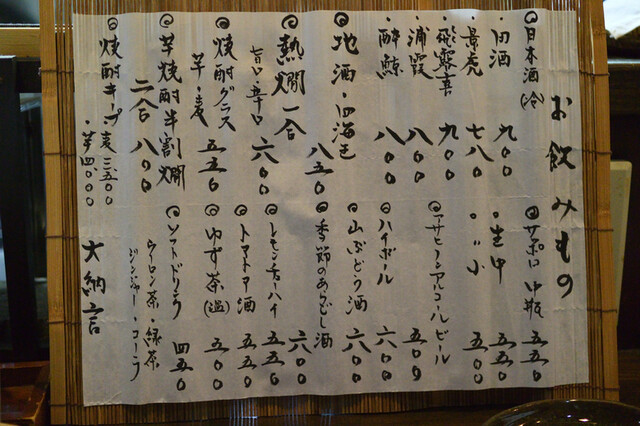 お飲みもの
◎日本酒(冷)
・旧酒 九〇〇
・景虎 七八〇
・飛露喜 九〇〇
・浦霞 八〇〇
・酔鯨 八〇〇
地酒・四海王 八五〇
◎熱燗一合
旨口・辛口 六〇〇
◎焼酎グラス
芋・麦 五五〇
◎芋焼酎半割燗
二合 八〇〇
◎焼酎キープ 麦三五〇〇
・芋四〇〇〇
◎サッポロ中瓶 五五〇
・生中 五五〇
・〃小 五〇〇
◎アサヒノンアルコールビール 五〇〇
◎ハイボール 六〇〇
◎山ぶどう酒 六〇〇
◎季節のあらごし酒 六〇〇
◎レモンチューハイ 五五〇
◎トマト酒 五五〇
◎ゆず茶(温) 五〇〇
◎ソフトドリンク 四五〇
ウーロン茶・緑茶
ジンジャー・コーラ
大納言